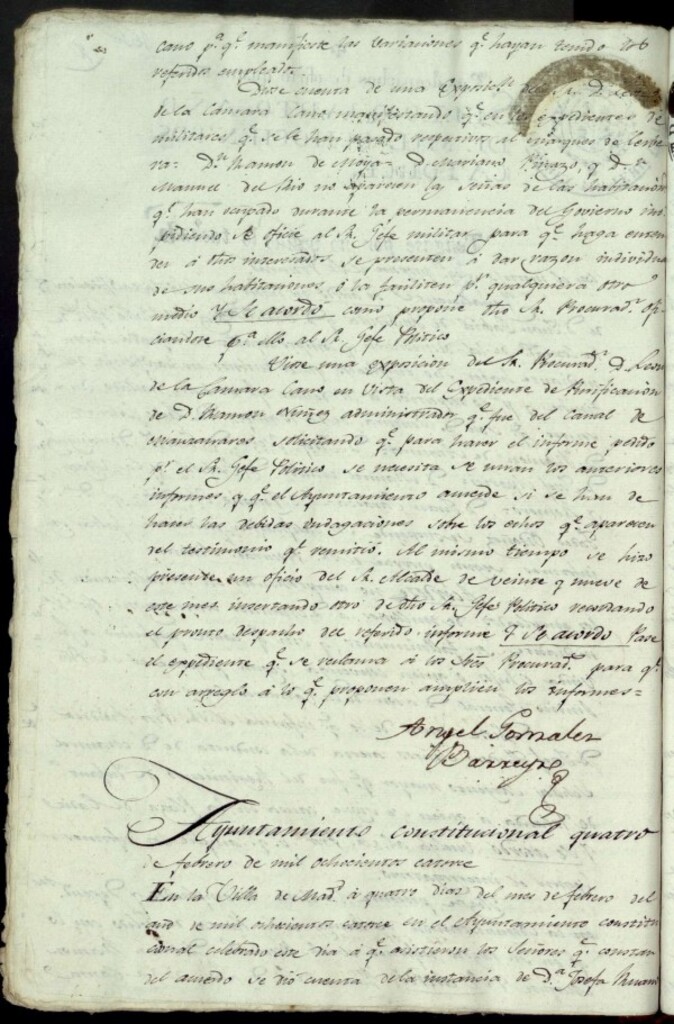 cano p.ª q.ᵉ manifieste las variaciones q.ᵉ hayan tenido los
referidos empleados.
Diose cuenta de una Exposic.ⁿ del S.ʳ D.
de la Cámara Cano manifestando q.ᵉ en los expedientes de
militares q.ᵉ se le han pasado respectivos al Marques de
D.ⁿ Ramon de Moya= D. Mariano y D.ⁿ
Manuel del Rio no aparecen las señas de las habitacion
q.ᵉ han ocupado durante la permanencia del Govierno in
pidiendo se oficie al S.ʳ Gefe militar para q.ᵉ haga enten
der á dhos interesados se presenten á dar razon individua
de sus habitaciones, ó la faciliten p.ʳ qualquiera otro
medio Y se acordó como propone dho S.ʳ Procurad.ʳ ofi
ciandose p.ª ello al S.ʳ Gefe Politico.
Viose una exposicion del S.ʳ Procurad.ʳ D. Leon
de la Camara Cano en vista del Expediente de Purificacion
de D. Ramon Nuñez administrador q.ᵉ fue del Canal de
Manzanares solicitando q.ᵉ para hacer el informe pedido
p.ʳ el S.ʳ Gefe Politico se necesita se unan los anteriores
informes y q.ᵉ el Ayuntamiento acuerde si se han de
hacer las debidas indagaciones sobre los echos q.ᵉ aparecen
del testimonio q.ᵉ remitió. Al mismo tiempo se hizo
presente un oficio del S.ʳ Alcalde de veinte y nueve de
este mes insertando otro de dho S.ʳ Gefe Politico recordando
el pronto despacho del referido informe Y se acordó Pase
el expediente q.ᵉ se reclama á los S.ʳᵉˢ Procurad.ˢ para q.ᵉ
con arreglo á lo q.ᵉ proponen amplien los informes=
Angel Gonzalez
Barreyro
Ayuntamiento constitucional quatro
de febrero de mil ochocientos catorce
En la Villa de Mad.ᵈ á quatro dias del mes de febrero del
año de mil ochocientos catorce en el Ayuntamiento constitu
cional celebrado este dia á q.ᵉ asistieron los Señores q.ᵉ constan
del acuerdo se dió cuenta de la instancia de D.ª Josefa